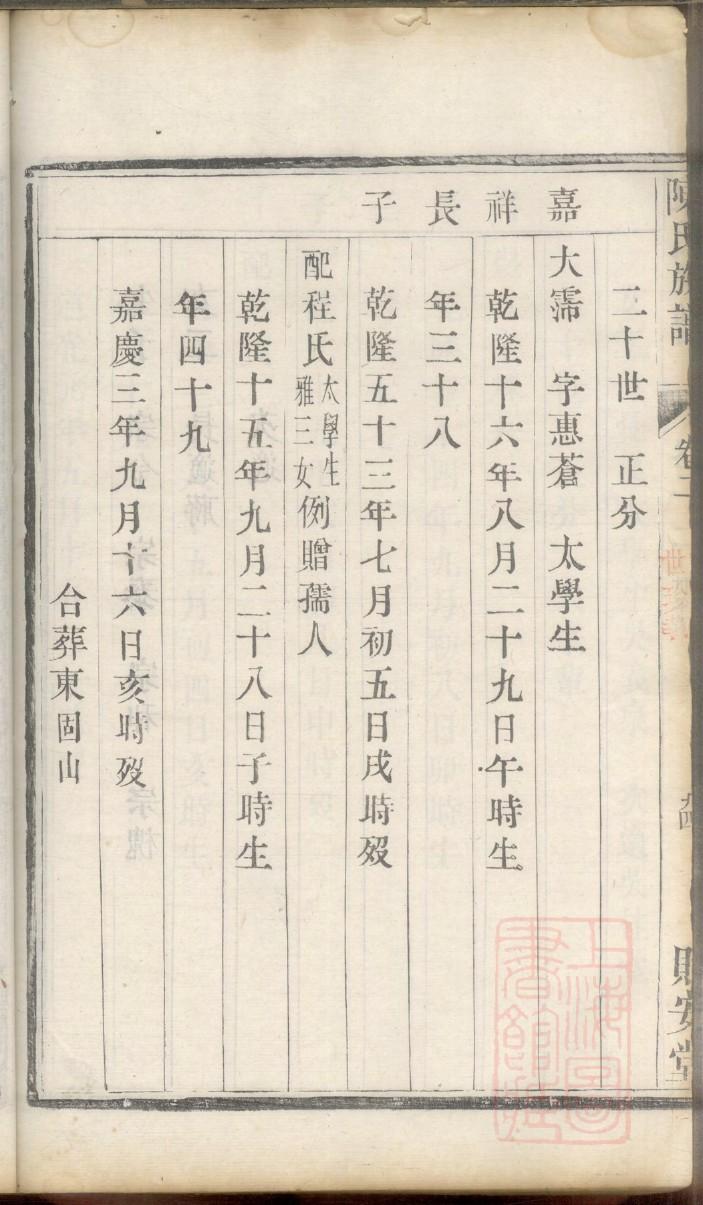 陳氏族譜 卷二
二十世 正分
嘉祥長子
大霈 字惠蒼 太學生
乾隆十六年八月二十九日午時生
年三十八
乾隆五十三年七月初五日戌時歿
配程氏 太學生
雅三女 例贈孺人
乾隆十五年九月二十八日子時生
年四十九
嘉慶三年九月十六日亥時歿
合葬東固山
上海圖書館藏